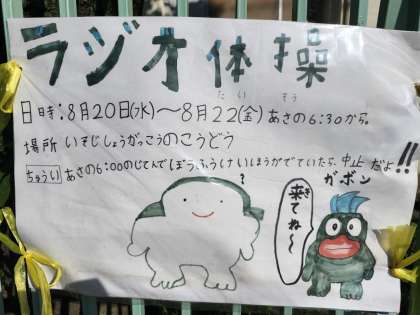 ラジオ体操
たいそう
日時:8月20日(水)~8月22(金)あさの6:30から。
場所 いさじしょうがっこうのこうどう
ちゅうい あさの6:00のじてんでぼうふうけいほうがでていたら、中止だよ!!
?
ガボン
来てね~
き